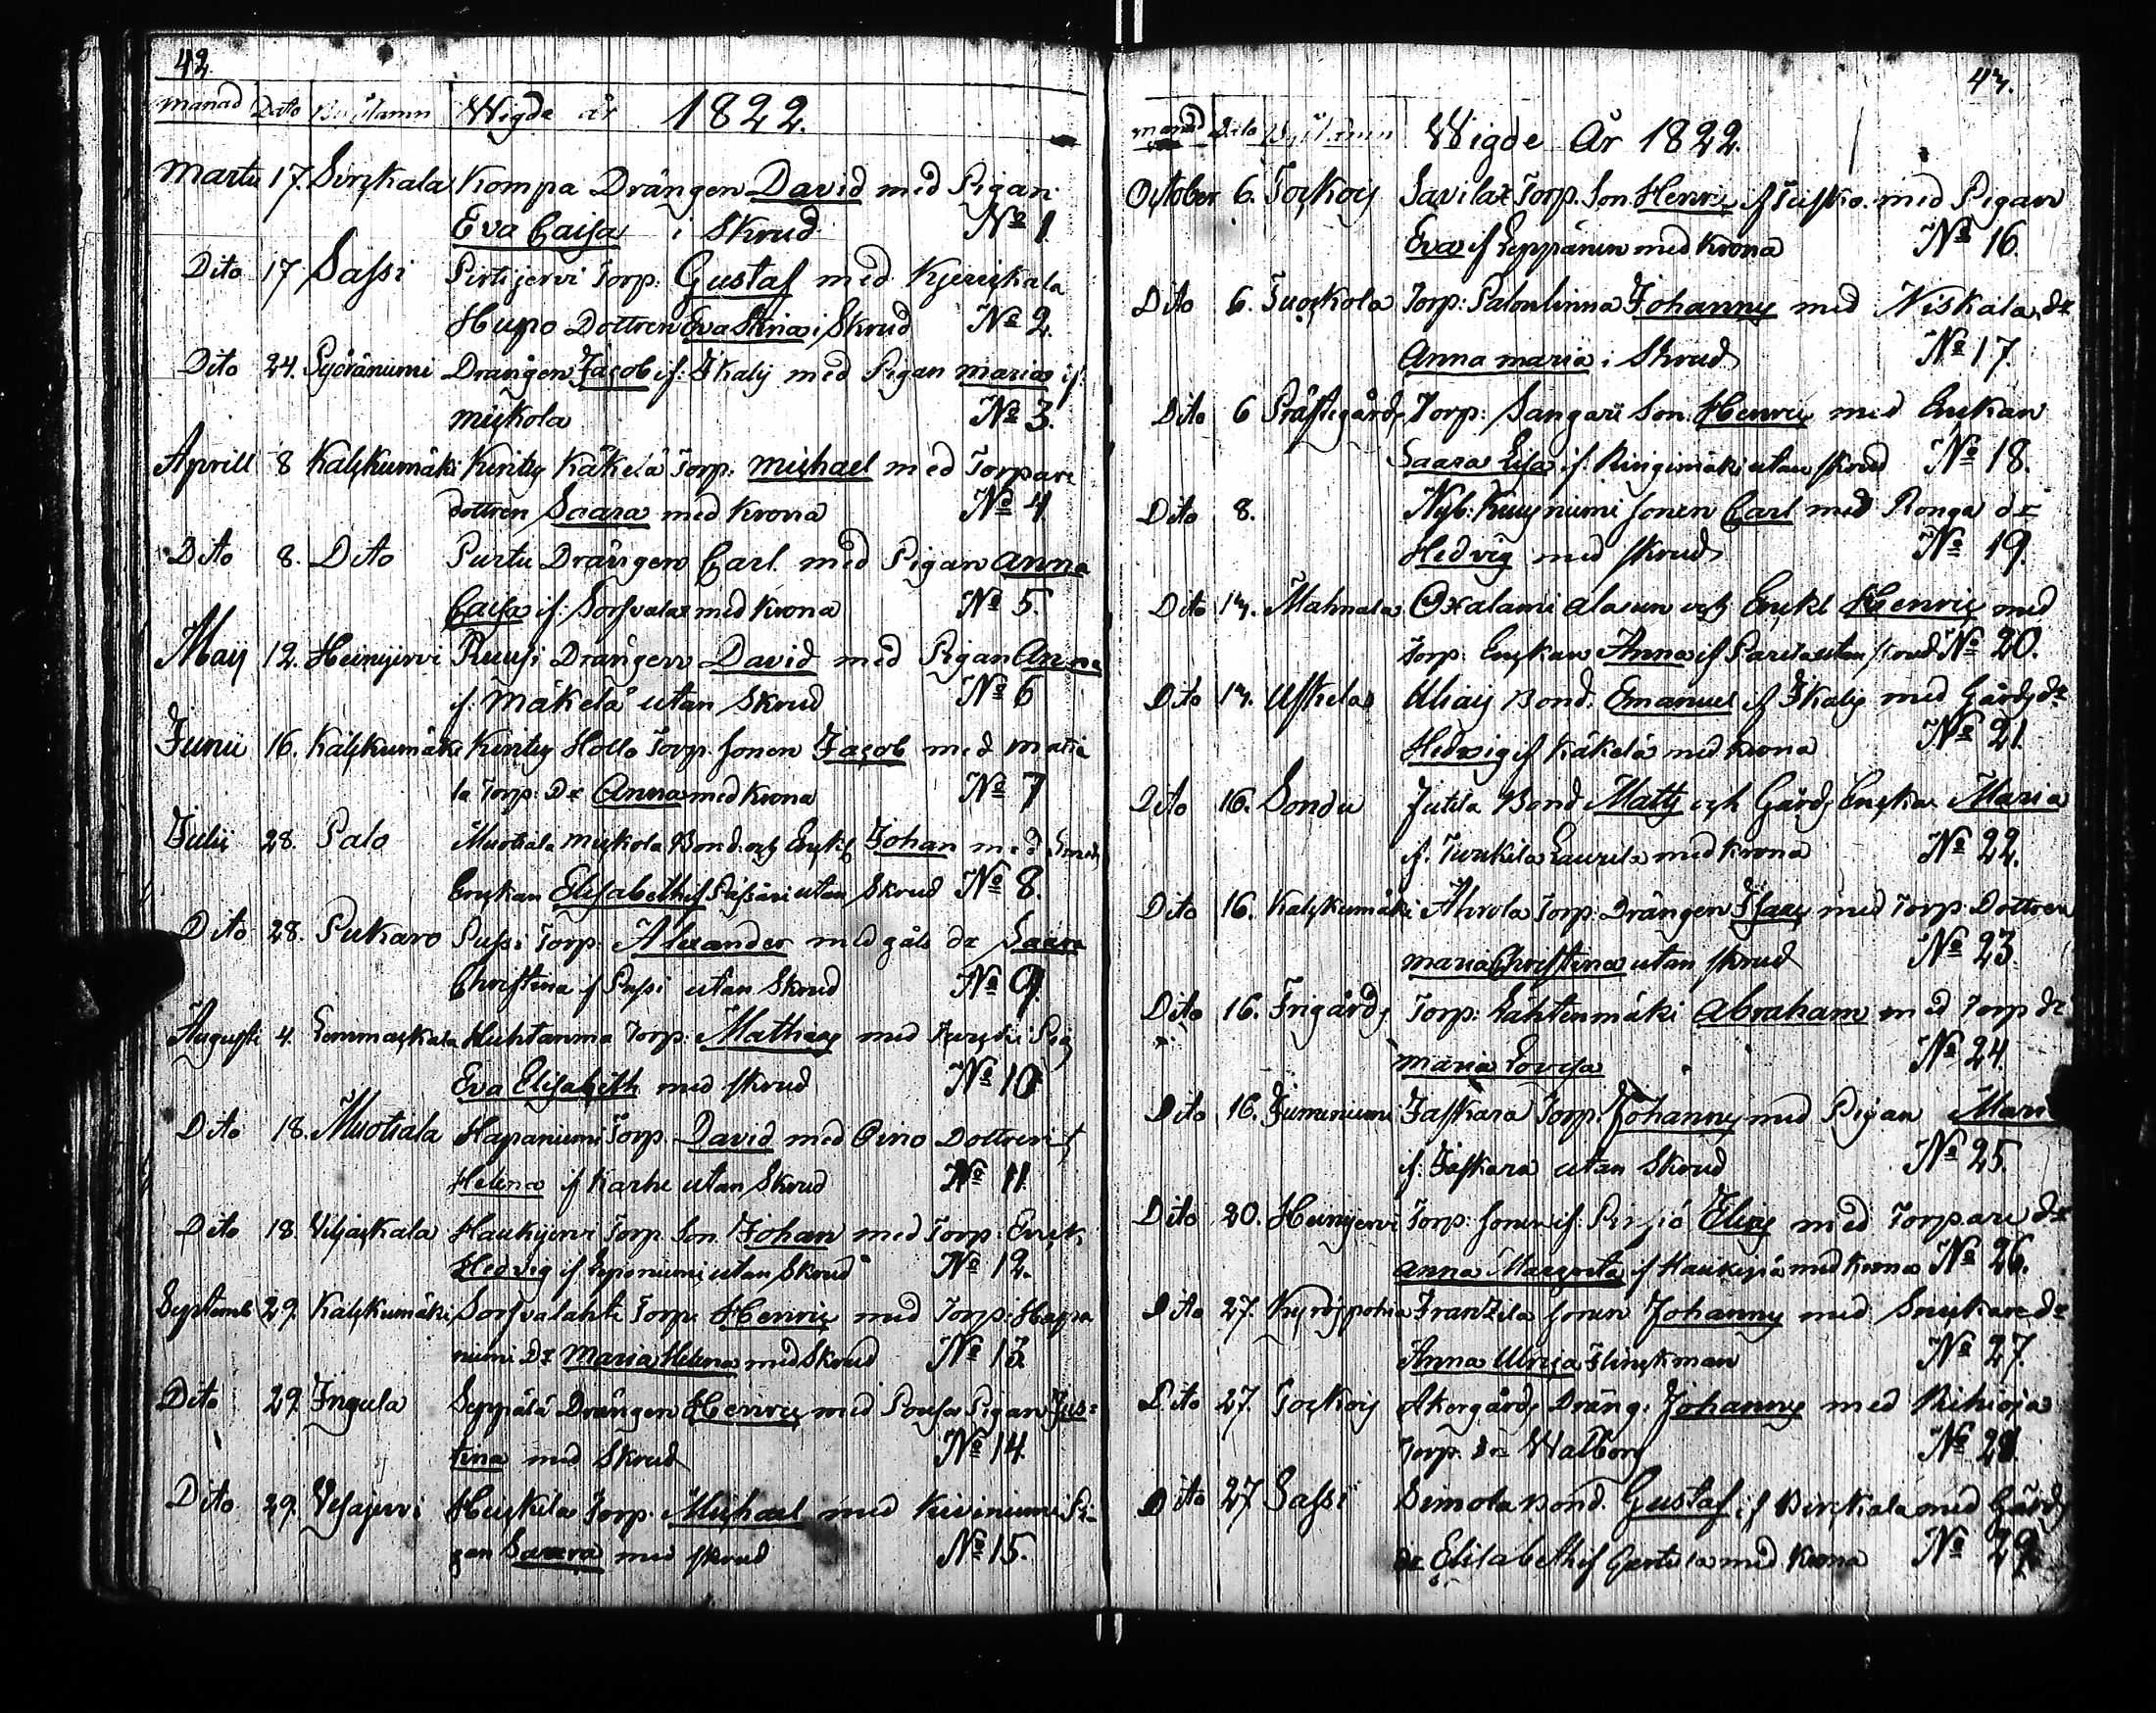 42.
månad Dato Wigde år 1822.
Martii 17. Sirckala Kompa Drängen David med Pigan
Eva Caisa i Skrud No 1.
Dito 17 Sassi Pirtijervi Torp: Gustaf med
Hupo Dottren Eva Stina i Skrud No 2.
Dito 24. Pyöräniemi Drängen Jacob if: Skalij med Pigan Maria if:
Mickola No 3.
Aprill 8 Kalckumäki Käkelä Torp: Michael med Torpare
dottren Saara med Krona No 4.
Dito 8. Dito Purtu Drängen Carl med Pigan Anna
Caisa if: Sorfvala med Krona No 5.
Maij 12. Heinijervi Ruusi Drängen David med Pigan Anna
if: Mäkelä utan Skrud No 6
Junii 16. Kalckumäki Hollo Torp. sonen Jacob med Matti
la Torp: Dr Anna med Krona No 7
Julii 28. Palo Muotiala Mickola Bond: och Enckl Johan med
Enckan Elisabeth if utan Skrud No 8.
Dito 28. Pukaro Pussi Torp. Alexander med dr Saara
Christina if Pusi utan Skrud No 9.
Augusti 4. Lemmackala Huhtanma Torp: Mathias med Pig
Eva Elisabeth med skrud No 10
Dito 18. Muotiala Hapaniemi Torp. David med Dottren
Helena if Karhe utan Skrud No 11.
Dito 18. Viljackala Haukijervi Torp. Son Johan med Torp: Enck
Hedvig if utan Skrud No 12.
Septemb 29. Kalckumäki Sorfvalahti Torp: Henric med Torp: Hapa
niemi Dr Maria Helena med Skrud No 13.
Dito 29. Ingula Seppälä Drängen Henric med Pousa Pigan Jus=
tina med Skrud No 14.
Dito 29. Vesajervi Huckila Torp. Michael med Kiviniemi Pi-
gan Saara med skrud No 15.
43.
månad Dato Wigde År 1822.
October 6. Savila Torp. Son Henric if med Pigan
Eva if Leppänen med Krona No 16.
Dito 6. Tuockola Torp: Palonlinna Johannes med Niskala dr
Anna Maria i Skrud No 17.
Dito 6 Prästegårds Torp: Sangari Son Henric med Enckan
Saara Lisa if: Ringimäki utan skrud No 18.
Dito 8. Nyb: sonen Carl med Ronga dr
Hedvig med skrud No 19.
Dito 13. Mahnala och Enckl Henric med
Torp. Enckan Anna if utan skrud No 20.
Dito 13. Uskela Bond. Emanuel if Skalij med Gårds dr
Hedvig if Käkelä med krona No 21.
Dito 16. Sondu Jutila Bond Matts och Gårds Enckan Maria
if. Turckila Laurila med Krona No 22.
Dito 16. Kalckumäki Ahrola Torp: Drängen Isaac med Torp. Dottren
Maria Christina utan skrud No 23.
Dito 16. Frigårds Torp: Lähtenmäki Abraham med Torp dr
Maria Lovisa No 24.
Dito 16. Jumeniemi Jaskara Torp. Johannes med Pigan Maria
if. Jaskara utan Skrud No 25.
Dito 20. Heinijervi Torp: sonen if: Pinsiö Elias med Torpare dr
Anna Margreta if Haukijä med Krona No 26.
Dito 27. Kyröspohia Frantzila sonen Johannes med Snickare dr
Anna Ulrica Flinckman No 27.
Dito 27. Åkergårds Dräng. Johannes med Rihioja
Torp. dr Walborg No 28.
Dito 27 Sassi Simola Bond. Gustaf if Birckala med Gårds
dr Elisabeth if Gertula med Krona No 29